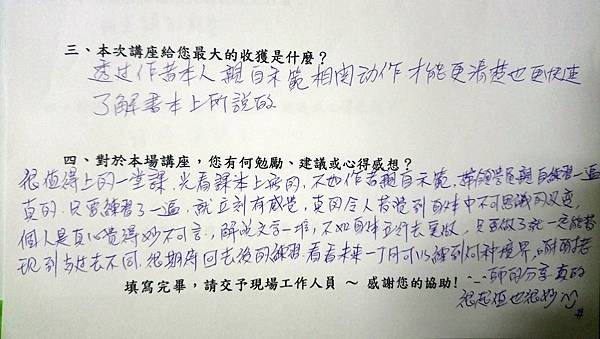 三、本次講座給您最大的收獲是什麼？
透过作者本人親自示範相関动作才能更清楚也更快速
了解書本上所說的
四、對於本場講座，您有何勉勵、建議或心得感想？
很值得上的一堂課，光看課本上所寫的，不如作者親自示範，帶領學員親自練習一遍
真的，只要練習了一遍，就立刻有感覺，真的令人荐覺到自体中不可思議的改变，
個人是真心覺得妙不可言，解說文字一堆，不如自体力行去实做，只要做了就一定能發
現到与过去不同，很期待回去後的練習，看看未來一个月可以練到何种境界，謝謝老
師的分享，真的
很超值也很妙^^
填寫完畢，請交予現場工作人員 ～ 感謝您的協助！
#